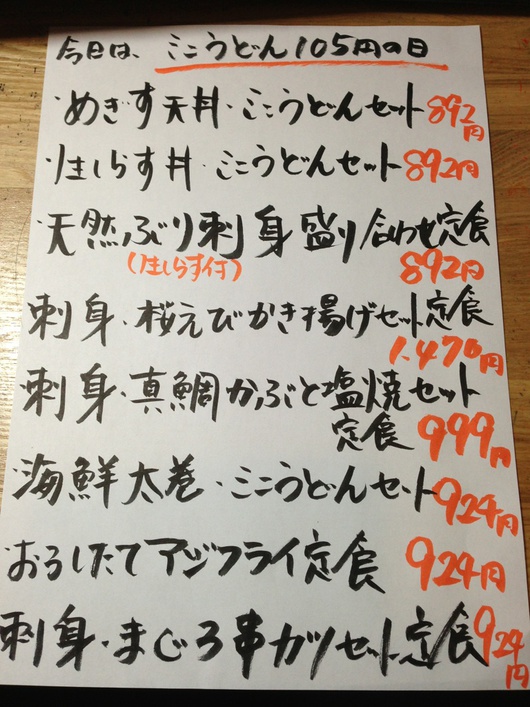 今日は、ミニうどん105円の日
・めぎす天丼・ミニうどんセット892円
・生しらす丼・ミニうどんセット892円
・天然ぶり刺身盛り合わせ定食
(生しらす付)
892円
・刺身・桜えびかき揚げセット定食
1.470円
・刺身・真鯛かぶと塩焼セット
定食 999円
・海鮮太巻・ミニうどんセット924円
・おろしたてアジフライ定食 924円
・刺身・まぐろ串カツセット定食924円